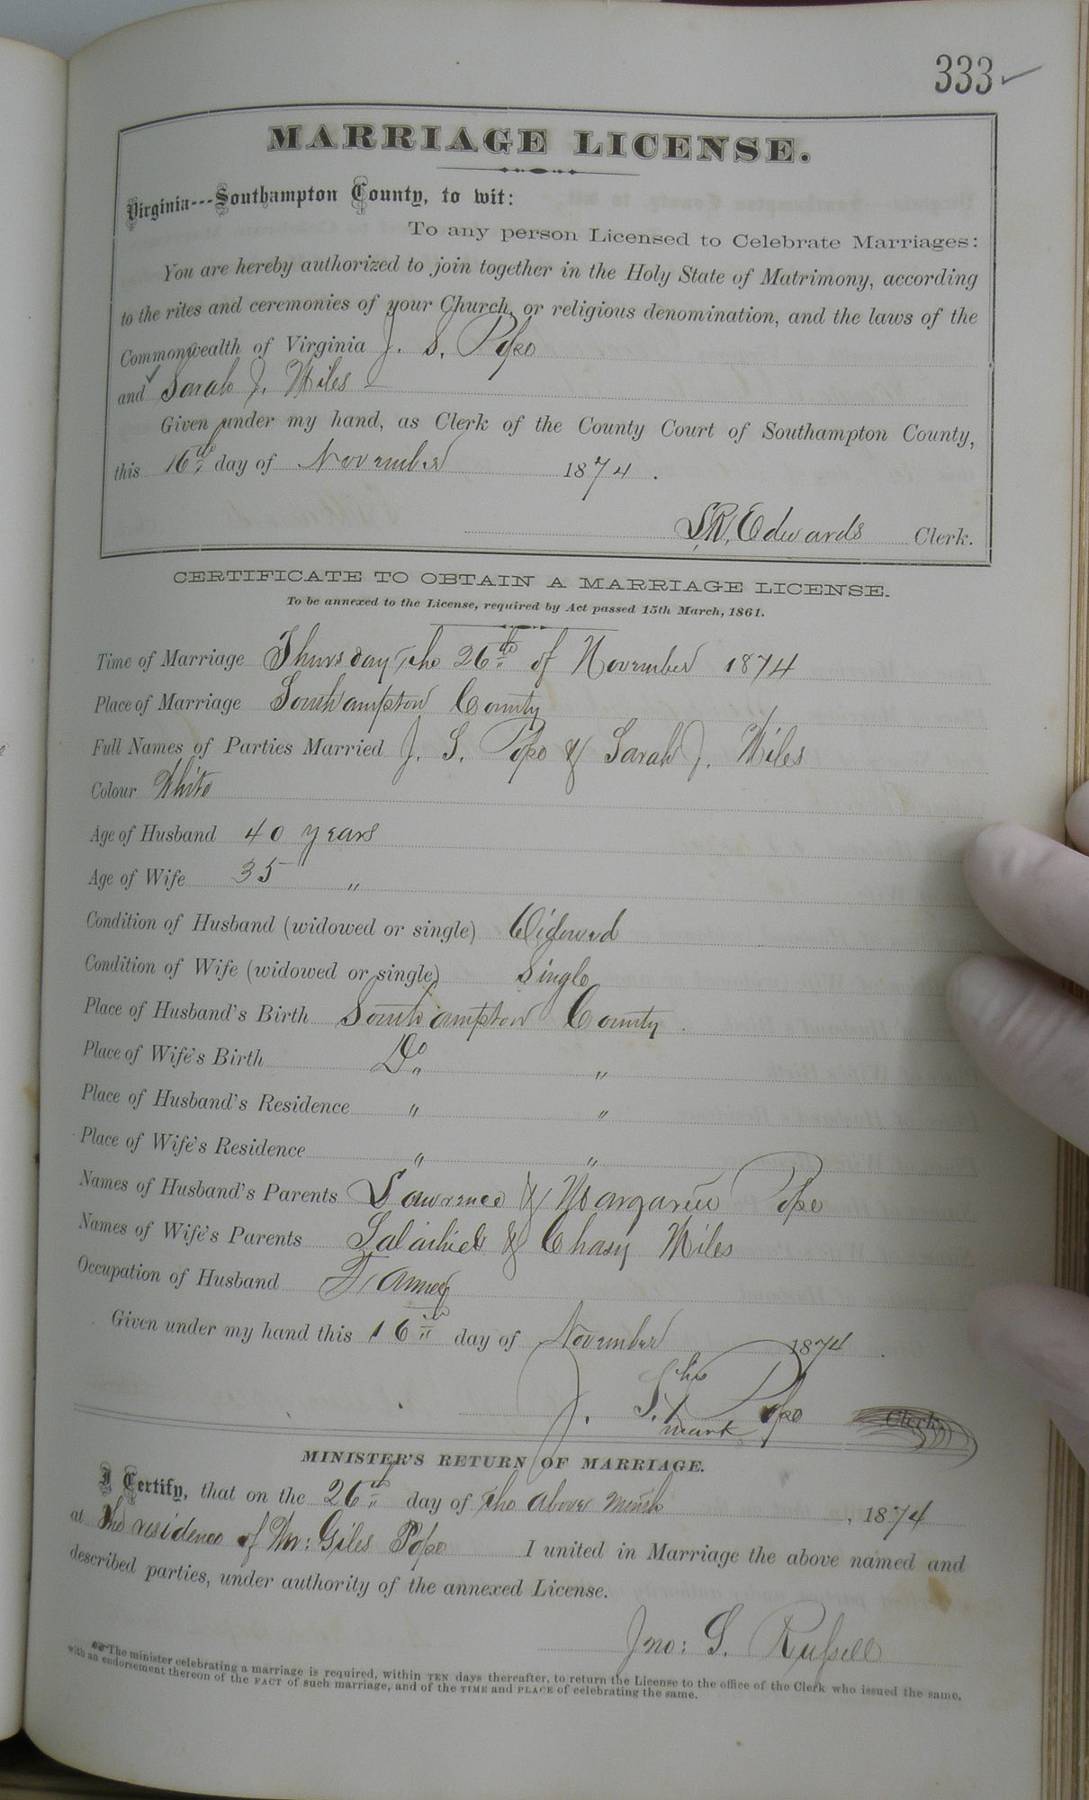 333
MARRIAGE LICENSE.
Virginia---Southampton County, to wit:
To any person Licensed to Celebrate Marriages:
You are hereby authorized to join together in the Holy State of Matrimony, according
to the rites and ceremonies of your Church, or religious denomination, and the laws of the
Commonwealth of Virginia J. S. Pope
and Sarah J. Niles
Given under my hand, as Clerk of the County Court of Southampton County,
this 16th day of November 1874.
L.R. Edwards Clerk.
CERTIFICATE TO OBTAIN A MARRIAGE LICENSE.
To be annexed to the License, required by Act passed 15th March, 1861.
Time of Marriage Thursday the 26th of November 1874
Place of Marriage Southampton County
Full Names of Parties Married J. S. Pope & Sarah J. Niles
Colour White
Age of Husband 40 years
Age of Wife 35 "
Condition of Husband (widowed or single) Widowed
Condition of Wife (widowed or single) Single
Place of Husband's Birth Southampton County.
Place of Wife's Birth Do "
Place of Husband's Residence " "
Place of Wife's Residence " "
Names of Husband's Parents Lawrence & Margaret Pope
Names of Wife's Parents & Chasy Niles
Occupation of Husband Farmer
Given under my hand this 16th day of November 1874.
his
J. S. X Pope Clerk.
mark
MINISTER'S RETURN OF MARRIAGE.
I Certify, that on the 26th day of the above month, 1874
at the residence of Mr: Giles Pope I united in Marriage the above named and
described parties, under authority of the annexed License.
Jno: G. Russell
The minister celebrating a marriage is required, within TEN days thereafter, to return the License to the office of the Clerk who issued the same,
with an endorsement thereon of the FACT of such marriage, and of the TIME and PLACE of celebrating the same.